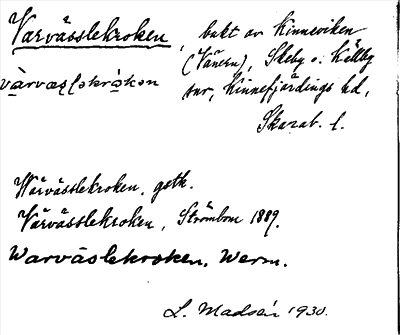 Varvässlekroken, bukt av Kinneviken
(Vänern), Skeby o. Källby
snr, Kinnefjärdings hd,
Skarab. l.
Wärvässlekroken, geth.
Värvässlekroken, Strömbom 1889.
Warväslekroken, Werm.
L. Madsén 1930.